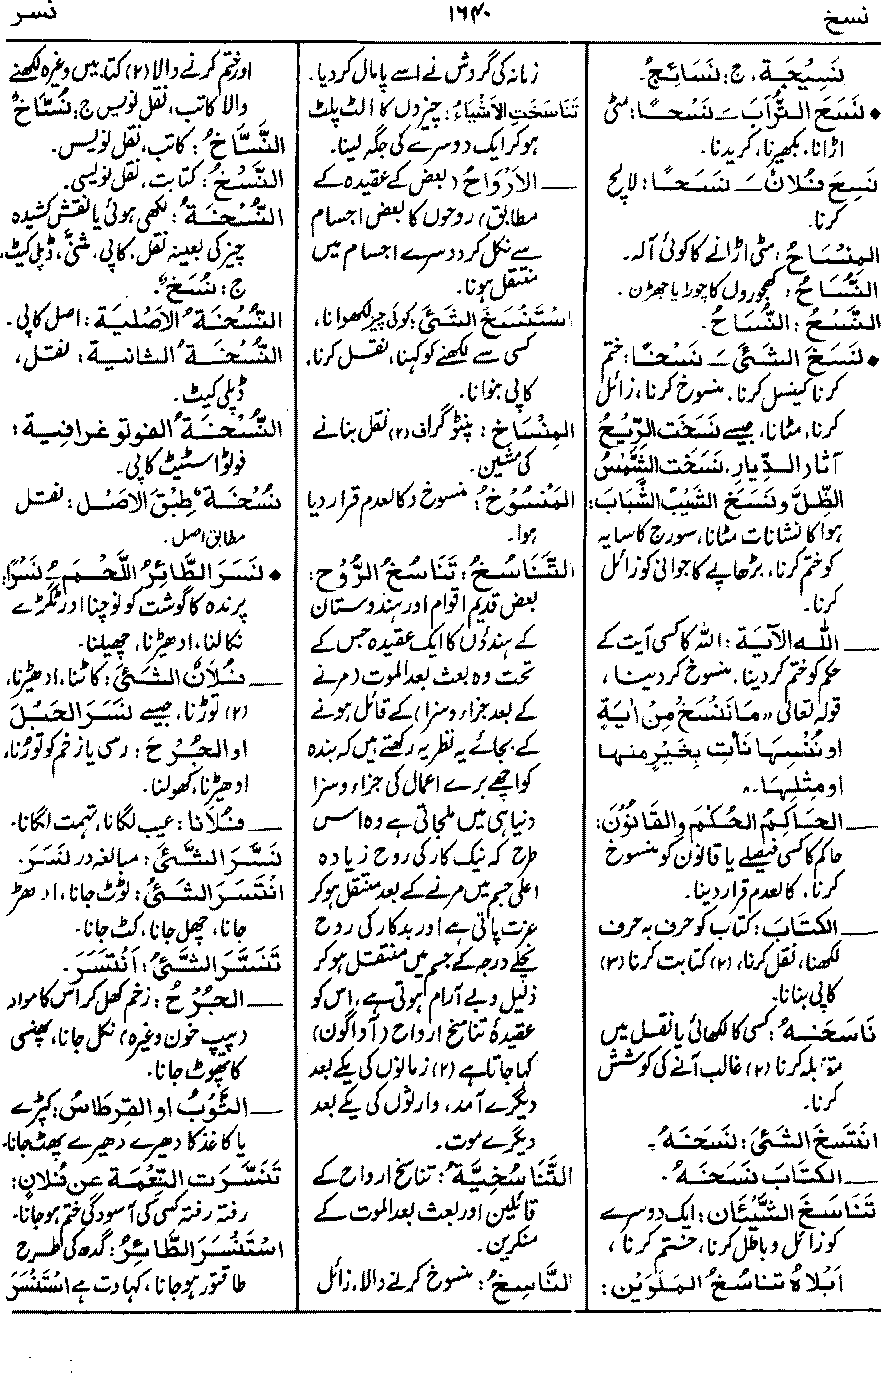 نسخ
۱۶۴۰
نسر
نَسِيْجَة، ج: نَسَائِجُ.
• نَسَحَ التُّرَابَ ــَـ نَسْحًا: مٹی
اڑانا، بکھیرنا، کریدنا.
نَسِحَ فُلَانٌ ــَـ نَسَحًا: لالچ
کرنا.
المِنْسَاحُ: مٹی اڑانے کا کوئی آلہ.
النُّسَاحُ: کھجوروں کا چورا یا جھڑن.
النُّسْحُ: النُّسَاحُ.
• نَسَخَ الشَّیْءَ ــَـ نَسْخًا: ختم
کرنا کینسل کرنا، منسوخ کرنا، زائل
کرنا، مٹانا، جیسے نَسَخَتِ الرِّيْحُ
آثارَ الدِّيارِ، نَسَخَتِ الشَّمْسُ
الظِّلَّ و نَسَخَ الشَّيْبُ الشَّبَابَ:
ہوا کا نشانات مٹانا، سورج کا سایہ
کو ختم کرنا، بڑھاپے کا جوانی کو زائل
کرنا.
ــــ اللهُ الآيةَ: اللہ کا کسی آیت کے
حکم کو ختم کردینا، منسوخ کردینا،
قولہ تعالیٰ «مَا نَنْسَخْ مِنْ اٰيَةٍ
او نُنْسِهَا نَأْتِ بِخَيْرٍ منها
او مِثْلِهَا.»
ــــ الحَاكِمُ الحُكْمَ والقَانُوْنَ:
حاکم کا کسی فیصلے یا قانون کو منسوخ
کرنا، کالعدم قرار دینا.
ــــ الكِتَابَ: کتاب کو حرف بہ حرف
لکھنا، نقل کرنا، (۲) کتابت کرنا (۳)
کاپی بنانا.
نَاسَخَهُ: کسی کا لکھائی یا نقل میں
مقابلہ کرنا (۲) غالب آنے کی کوشش
کرنا.
انْتَسَخَ الشَّیْءَ: نَسَخَهُ.
ــــ الكِتَابَ نَسَخَهُ.
تَنَاسَخَ الشَّيْئَانِ: ایک دوسرے
کو زائل و باطل کرنا، ختم کرنا،
اَبْلَاهُ تَنَاسُخُ المَلَوَيْنِ:
زمانہ کی گردش نے اسے پامال کردیا.
تَنَاسَخَتِ الأشْيَاءُ: چیزوں کا الٹ پلٹ
ہوکر ایک دوسرے کی جگہ لینا.
ــــ الأرْوَاحُ (بعض کے عقیدہ کے
مطابق) روحوں کا بعض اجسام
سے نکل کر دوسرے اجسام میں
منتقل ہونا.
اسْتَنْسَخَ الشَّیْءَ: کوئی چیز لکھوانا،
کسی سے لکھنے کو کہنا، نقل کرنا،
کاپی بنوانا.
المِنْسَاخُ: پنٹو گراف (۲) نقل بنانے
کی مشین.
المَنْسُوْخُ: منسوخ و کالعدم قرار دیا
ہوا.
التَّنَاسُخُ: تَنَاسُخُ الرُّوْحِ:
بعض قدیم اقوام اور ہندوستان
کے ہندؤں کا ایک عقیدہ جس کے
تحت وہ بعث بعد الموت (مرنے
کے بعد جزاء و سزا) کے قائل ہونے
کے بجائے یہ نظریہ رکھتے ہیں کہ بندہ
کو اچھے برے اعمال کی جزاء و سزا
دنیا ہی میں ملجاتی ہے وہ اس
طرح کہ نیک کار کی روح زیادہ
اعلی جسم میں مرنے کے بعد منتقل ہوکر
عزت پاتی ہے اور بدکار کی روح
نچلے درجہ کے جسم میں منتقل ہوکر
ذلیل و بے آرام ہوتی ہے، اس کو
عقیدۂ تناسخ ارواح (آواگون)
کہا جاتا ہے (۲) زمانوں کی یکے بعد
دیگرے آمد، وارثوں کی یکے بعد
دیگرے موت.
التَّنَاسُخِيَّةُ: تناسخ ارواح کے
قائلین اور بعث بعد الموت کے
منکرین.
النَّاسِخُ: منسوخ کرنے والا، زائل
اور ختم کرنے والا (۲) کتابیں وغیرہ لکھنے
والا کاتب، نقل نویس ج: نُسَّاخٌ
النَّسَّاخُ: کاتب، نقل نویس.
النَّسْخُ: کتابت، نقل نویسی.
النُّسْخَةُ: لکھی ہوئی یا نقش کشیدہ
چیز کی بعینہ نقل، کاپی، مثنیٰ، ڈپلی کیٹ،
ج: نُسَخٌ.
النُّسْخَةُ الأصْلِيَة: اصل کاپی.
النُّسْخَةُ الثَّانية: نقل،
ڈپلی کیٹ.
النُّسْخَةُ الفوتوغرافية:
فوٹو اسٹیٹ کاپی.
نُسْخَةٌ طِبْقَ الأصْل: نقل
مطابق اصل.
• نَسَرَ الطَّائِرُ اللَّحْمَ ــُِـ نَسْرًا:
پرندہ کا گوشت کو نوچنا اور ٹکڑے
نکالنا، ادھیڑنا، چھیلنا.
ــــ فُلَانٌ الشَّیْءَ: کاٹنا، ادھیڑنا،
(۲) توڑنا، جیسے نَسَرَ الحَبْلَ
او الجُرْحَ: رسی یا زخم کو توڑنا،
ادھیڑنا، کھولنا.
ــــ فُلَانًا: عیب لگانا، تہمت لگانا.
نَسَّرَ الشَّیْءَ: مبالغہ در نَسَرَ.
انْتَسَرَ الشَّیْءُ: ٹوٹ جانا، ادھڑ
جانا، چھل جانا، کٹ جانا.
تَنَسَّرَ الشَّیْءُ: اَنْتَسَرَ.
ــــ الجُرْحُ: زخم کھل کر اس کا مواد
(پیپ خون وغیرہ) نکل جانا، پھنسی
کا پھوٹ جانا.
ــــ الثَّوْبُ او القِرطاسُ: کپڑے
یا کاغذ کا دھیرے دھیرے پھٹ جانا.
تَنَسَّرَتِ النِّعْمَة عن فُلانٍ:
رفتہ رفتہ کسی کی آسودگی ختم ہوجانا.
اسْتَنْسَرَ الطَّائِرُ: گدہ کی طرح
طاقتور ہوجانا، کہاوت ہے اسْتَنْسَرَ